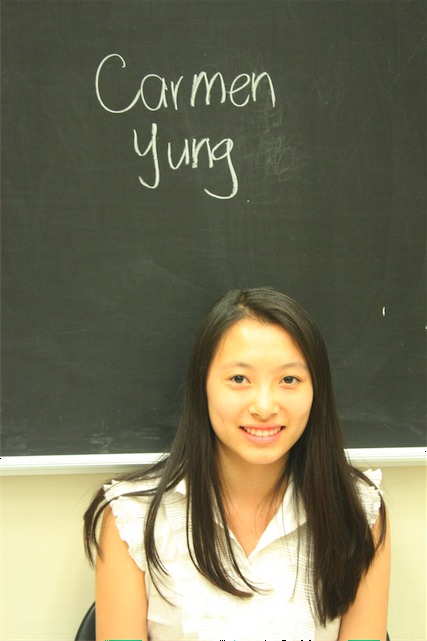 Carmen
Yung